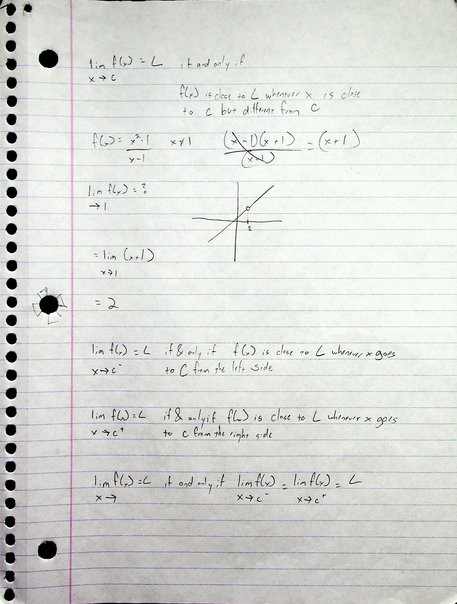 lim f(x) = L if and only if
x → c
f(x) is close to L whenever x is close
to c but different from c
f(x) = x²-1 / x-1 x≠1 (x-1)(x+1) / (x-1) = (x+1)
lim f(x) = ?
→ 1
1
= lim (x+1)
x→1
= 2
lim f(x) = L if & only if f(x) is close to L whenever x goes
x → c⁻ to c from the left side
lim f(x) = L if & only if f(x) is close to L whenever x goes
x → c⁺ to c from the right side
lim f(x) = L if and only if lim f(x) = lim f(x) = L
x → x→c⁻ x→c⁺